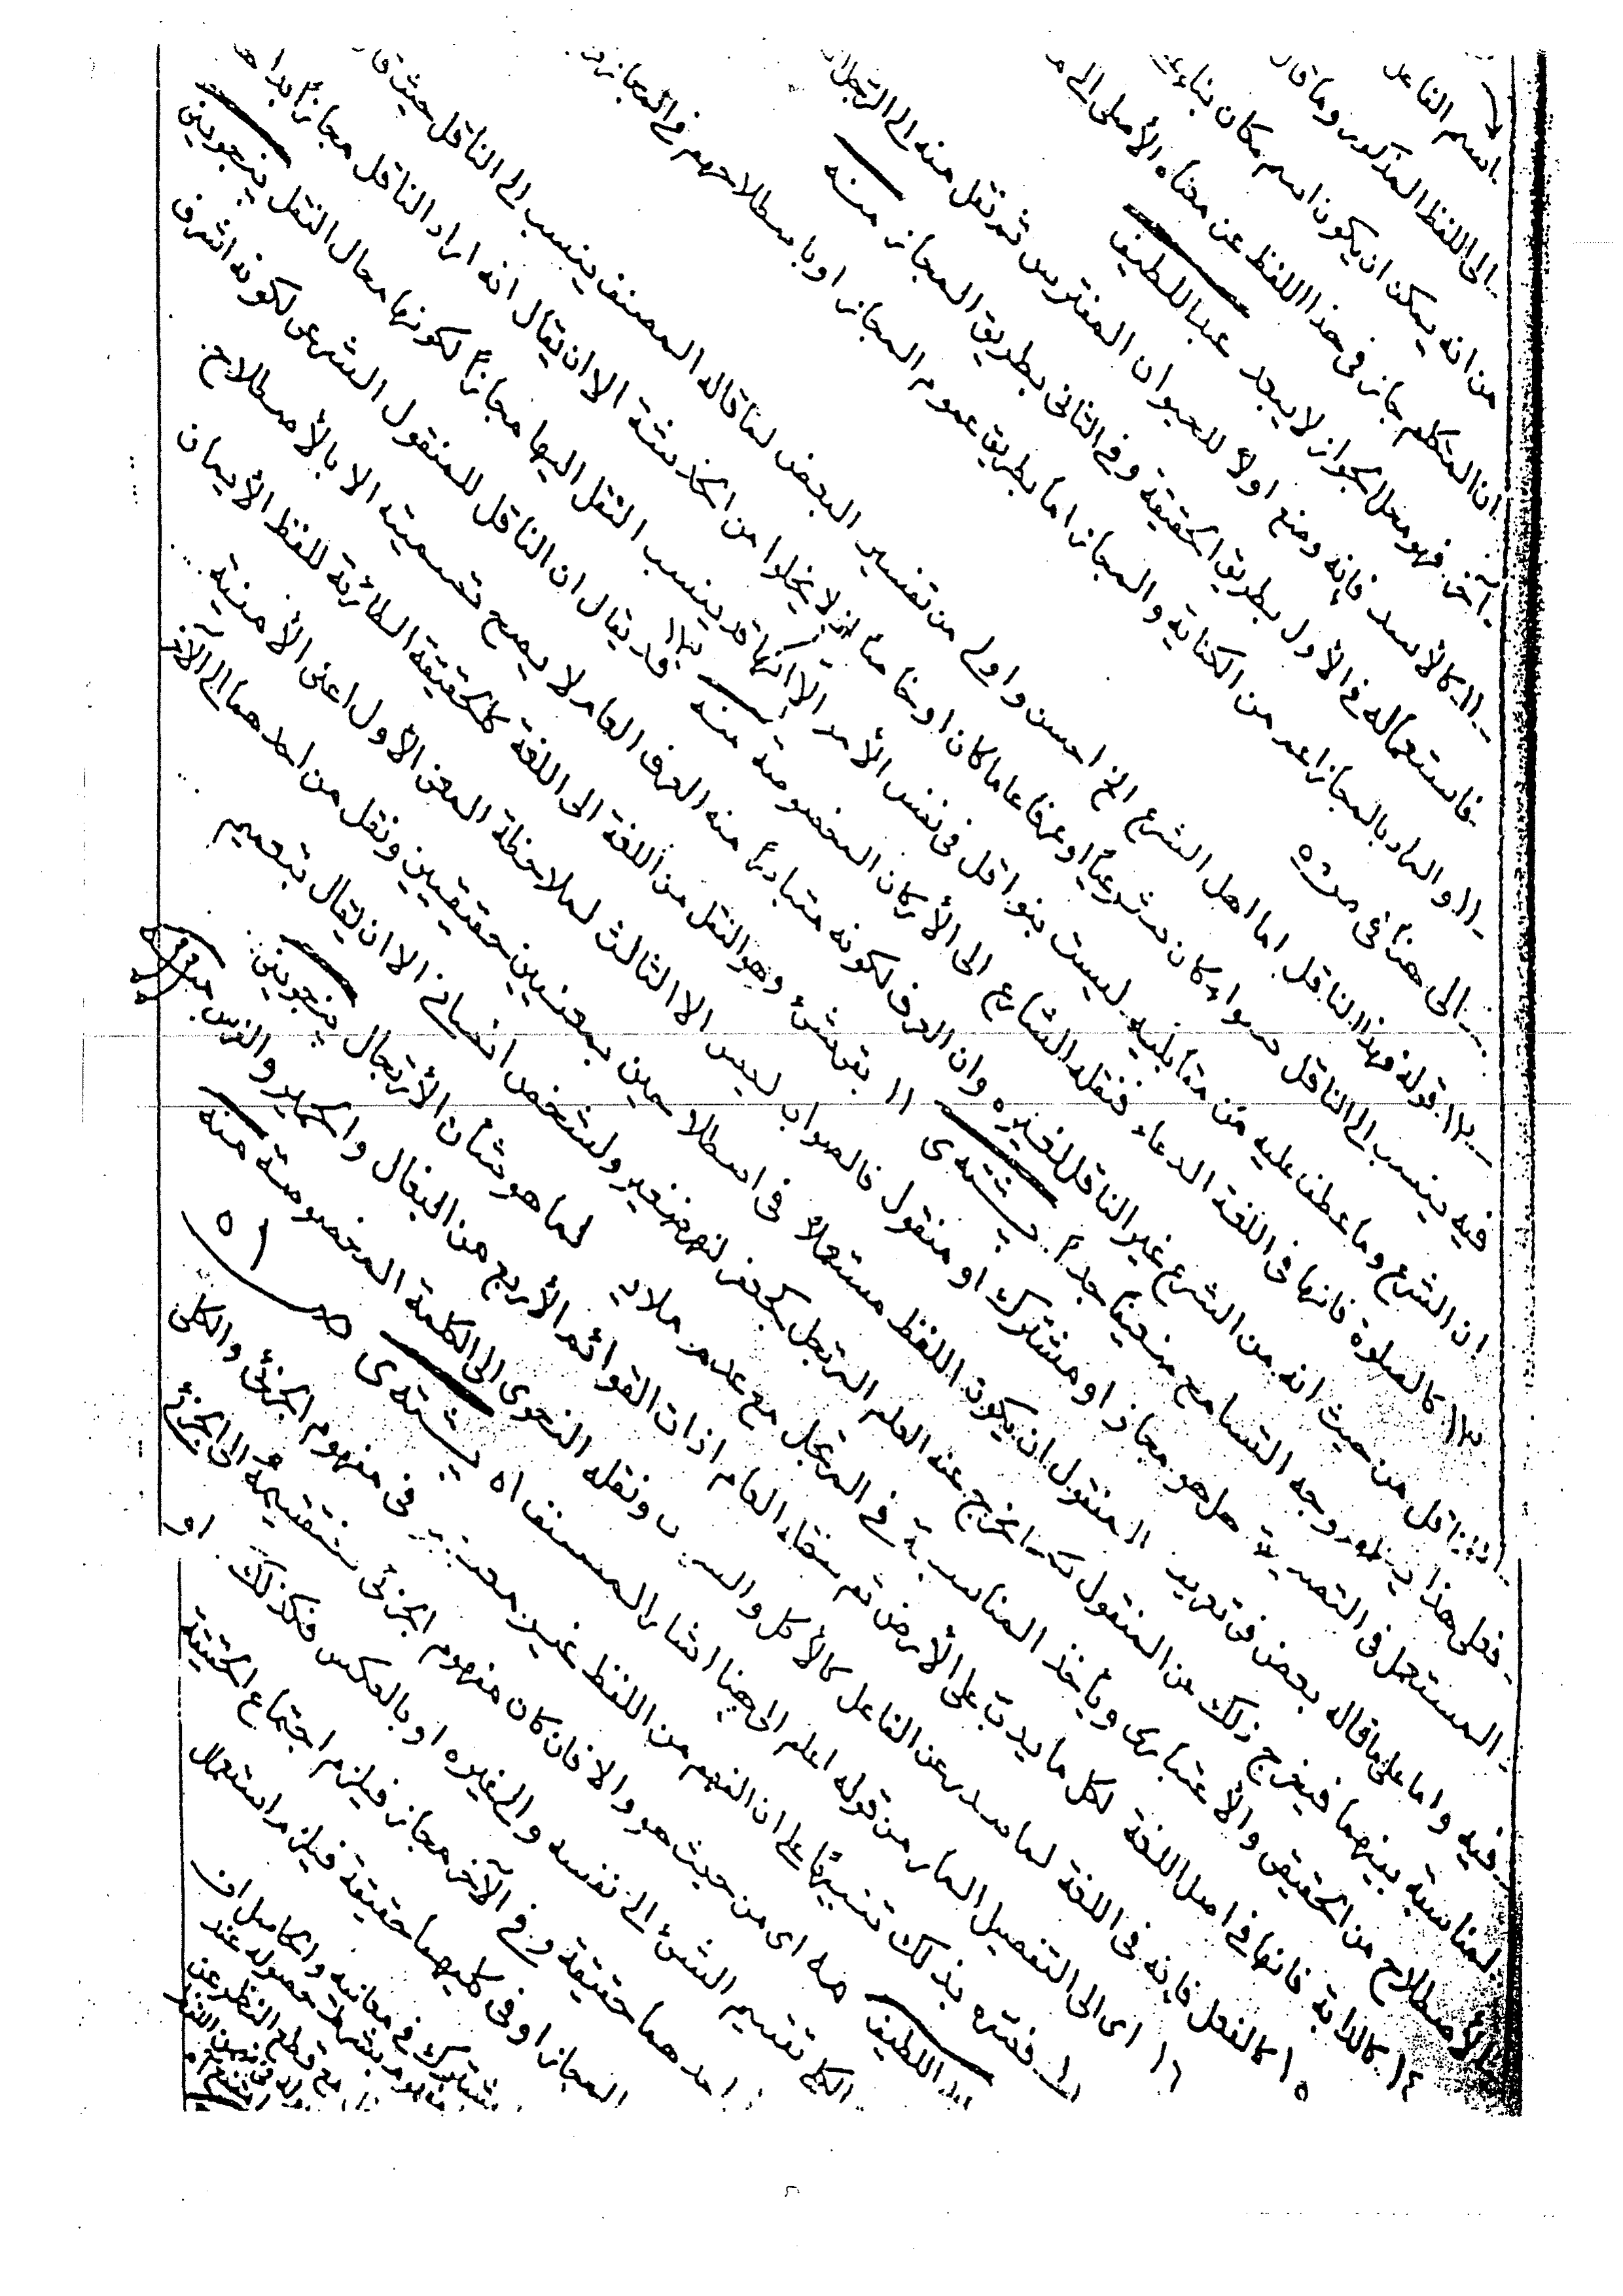 اسم الفاعل
الى اللفظ المذكور وما قال
من انه يمكن ان يكون اسم مكان بناء على
ان المتكلم جاز فى هذا اللفظ عن معناه الأصلى الى م
آخر فهو محل الجواز لا يبعد عبد اللطيف
١١ كالأسد فإنه وضع اولاً للحيوان المفترس ثم نقل منه الى الرجل
فاستعماله فى الأول بطريق الحقيقة وفى الثانى بطريق المجاز منه
١١ والمراد بالمجاز اعم من الكناية والمجاز اما بطريق عموم المجاز او باصطلاحهم فى المجاز
الى هنا فى ص ٥٠
١٢ قوله فهذا الناقل اما اهل الشرع الخ احسن واولى من تفسير البعض لما قاله المصنف ينسب الى الناقل حيث قال
فيه ينسب الى الناقل سواء كان شرعياً او عرفاً عاما كان او خاصاً اذ لا يخلوا من الخدشة الا ان يقال انه اراد الناقل مجازاً بدا
ان الشرع وما عطف عليه من مقابليه ليست بنواقل فى نفس الأمر الا انها قد ينسب النقل اليها مجازاً لكونها محال النقل ينجوينى
١٣ كالصلاة فانها فى اللغة الدعاء فنقله الشارع الى الأركان المخصوصة منه قد يقال ان الناقل للمنقول الشرعى لكونه اشرف
الناقل من حيث انه من الشرع غير الناقل لغيره وان العرف لكونه متبادراً منه العرف العام لا يصح تسميته الا بالأصطلاح
فعلى هذا يظهر وجه التسامح منحيثاً جداً پشتهى ١١ بقى شئ وهو النقل من اللغة الى اللغة كالحقيقة الطارئة للفظ الأيمان
المستعمل فى التصديق هل هو مجاز او مشترك او منقول فالصواب ليس الا الثالث لملاحظة المعنى الأول اعنى الأمنية
فيه واما على ما قاله بعض فى تعريف المنقول ان يكون اللفظ مستعملاً فى اصطلاحين بمعنيين حقيقيين ونقل من احدهما الى الآخر
لمناسبة بينهما فيخرج ذلك عن المنقول كما يخرج عنه العلم المرتجل كجعفر لنهر صغير ولشخص انسانى الا ان يقال بتعميم
الأصطلاح من الحقيقى والأعتبارى ويأخذ المناسبة فى المرتجل مع عدم ملا لما هو شأن الأرتجال ينجوينى
١٤ كالدابة فانها فى اصل اللغة لكل ما يدب على الأرض ثم نقله العام اذات القوائم الأربع من البغال والحمير والفرس
١٥ كالفعل فإنه فى اللغة لما صدر عن الفاعل كالأكل والشرب ونقله النحوى الى الكلمة المخصوصة منه
١٦ اى الى التفصيل المار من قوله اعلم الى هنا اشار المصنف اه پشتهى ص ٥١
١ فسّره بذلك تنبيهاً على ان الفهم من اللفظ غير معتبر فى مفهوم الجزئى والكلى
عبد اللطيف منه اى من حيث هو والا فان كان مفهوم الجزئى فتقسيمه الى الجزئى
الكلى تقسيم الشئ الى نفسه والى غيره او بالعكس فكذلك او
احدهما حقيقة وفى الآخر مجاز فيلزم اجتماع الحقيقة
المجاز او فى كليهما حقيقة فيلزم استعمال
مشترك فى معانيه والحاصل ان
بشرط حصوله عند
مع قطع النظر عن